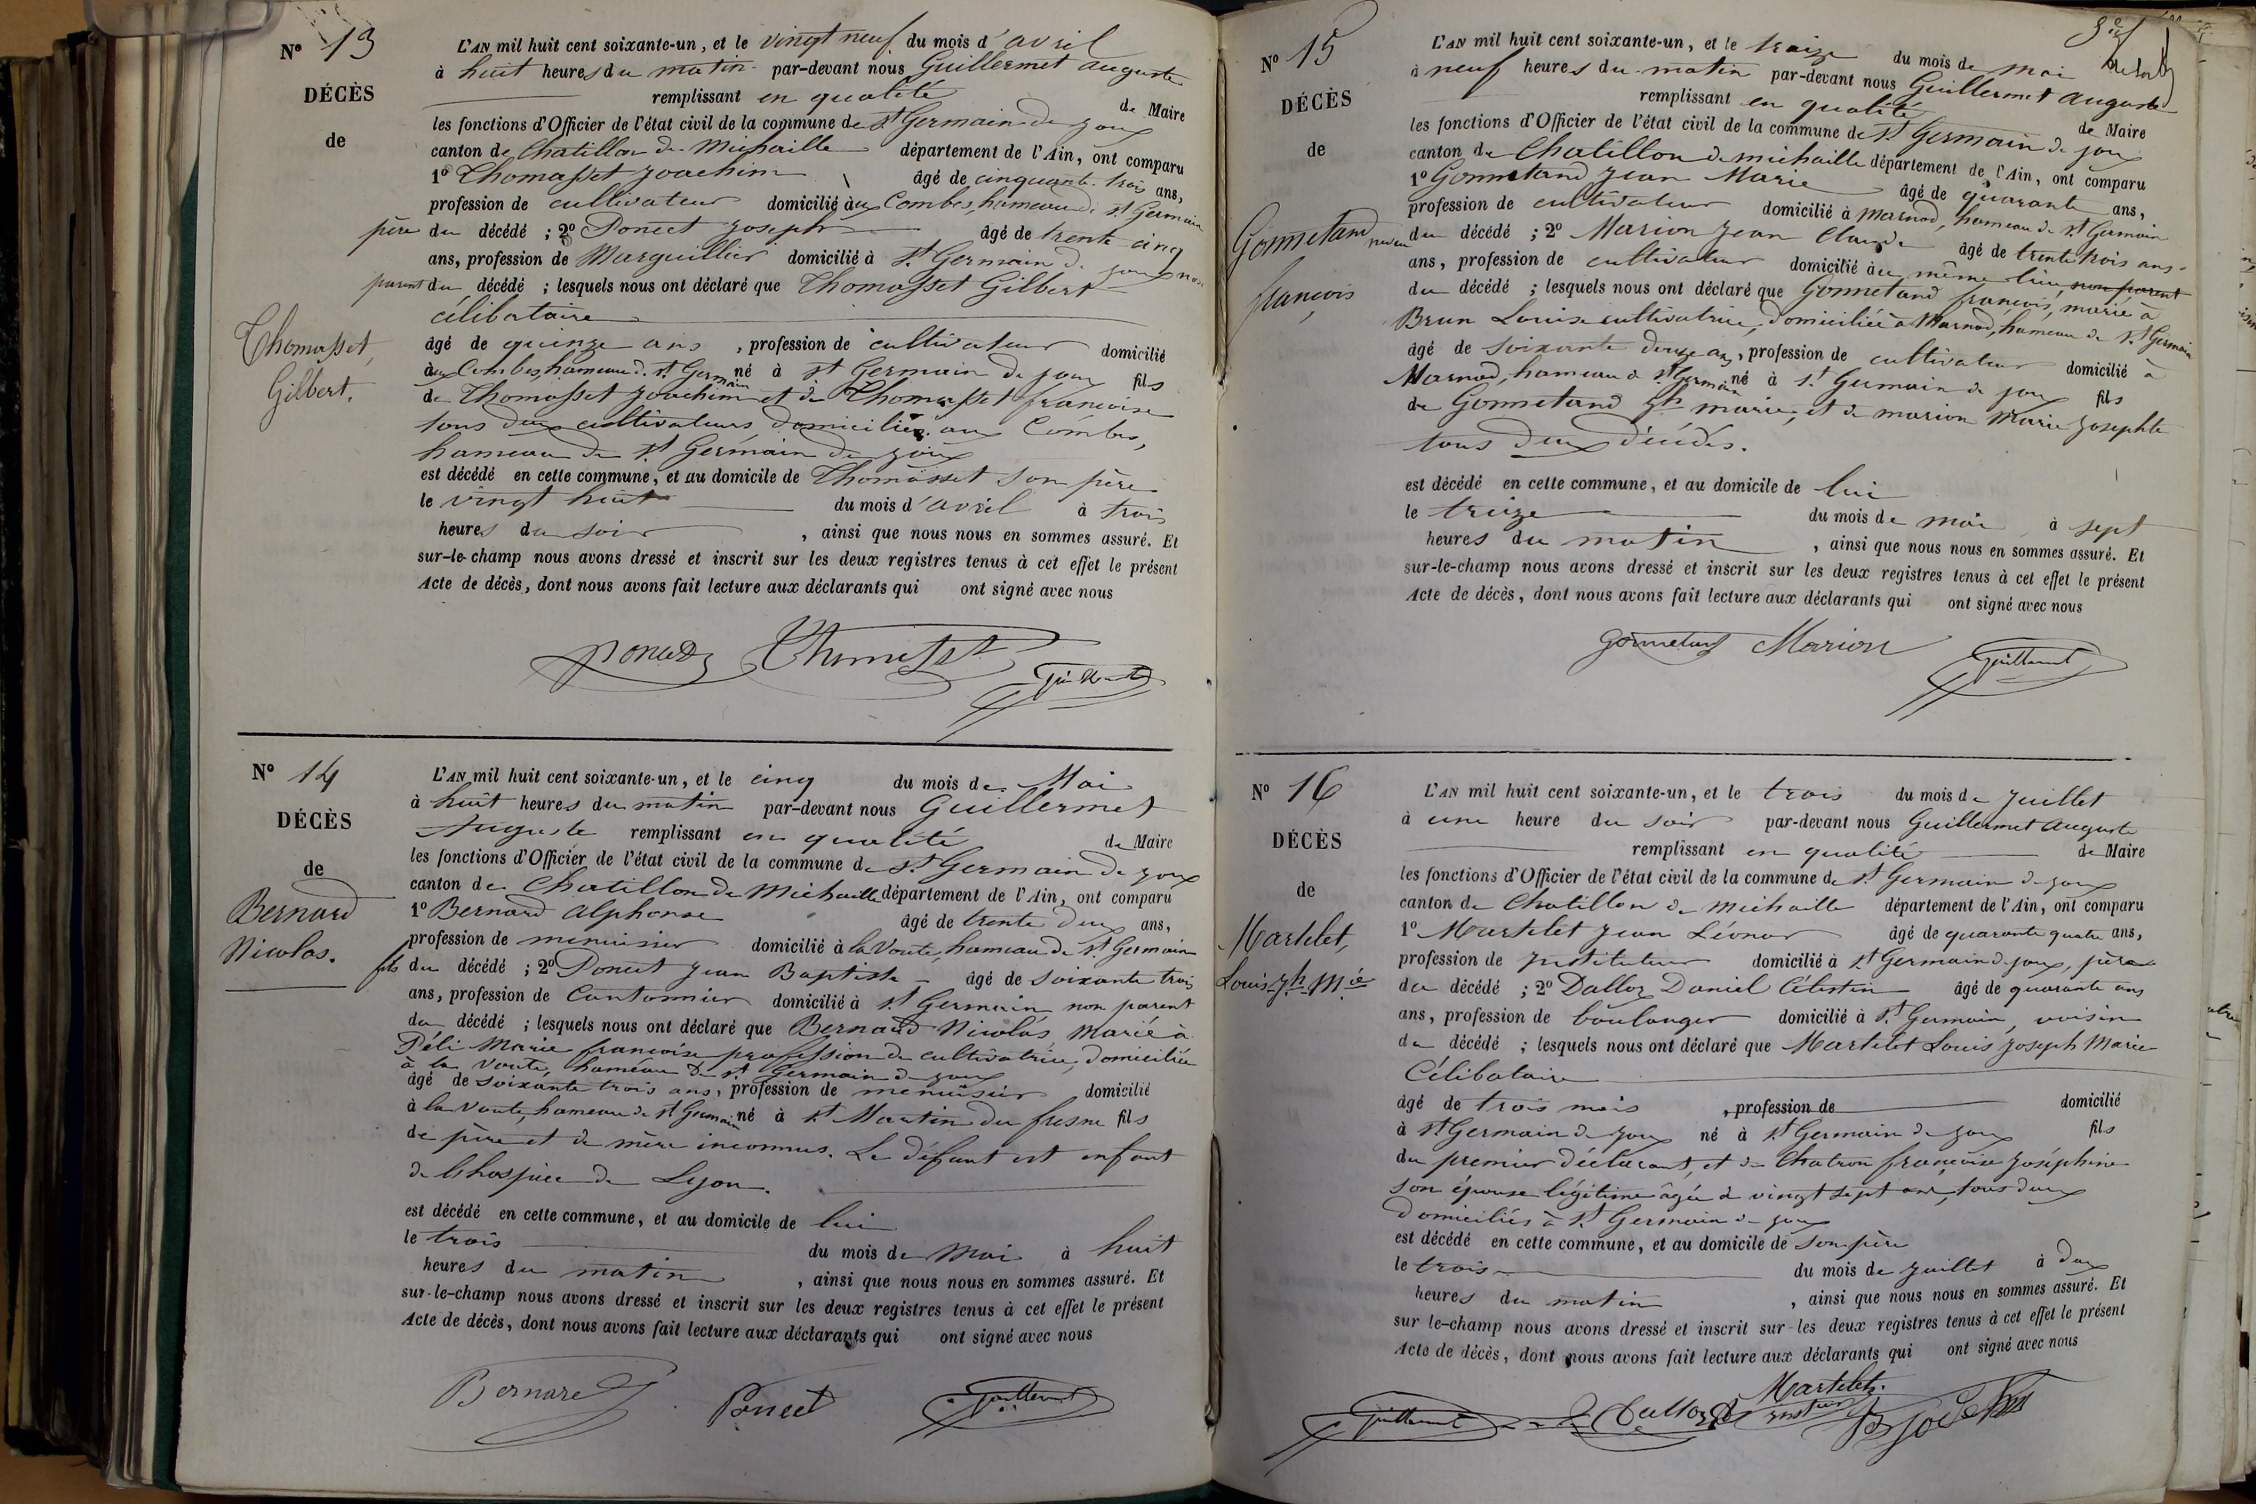 N° 13
DÉCÈS
de
Thomasset,
Gilbert.
L'AN mil huit cent soixante-un, et le vingt neuf du mois d'avril
à huit heures du matin par-devant nous Guillermet auguste
remplissant en qualité de Maire
les fonctions d'Officier de l'état civil de la commune de St Germain de Joux
canton de Chatillon de Michaille département de l'Ain, ont comparu
1° Thomasset Joachim âgé de cinquante-trois ans,
profession de cultivateur domicilié aux Combes, hameau de St Germain
père du décédé ; 2° Poncet Joseph âgé de trente cinq
ans, profession de Marguillier domicilié à St Germain de Joux non
parent du décédé ; lesquels nous ont déclaré que Thomasset Gilbert
célibataire
âgé de quinze ans, profession de cultivateur domicilié
aux Combes, hameau de St Germain né à St Germain de Joux fils
de Thomasset Joachim et de Thomasset françoise
tous deux cultivateurs domiciliés aux Combes,
hameau de St Germain de Joux
est décédé en cette commune, et au domicile de Thomasset son père
le vingt huit du mois d'avril à trois
heures du soir, ainsi que nous nous en sommes assuré. Et
sur-le-champ nous avons dressé et inscrit sur les deux registres tenus à cet effet le présent
Acte de décès, dont nous avons fait lecture aux déclarants qui ont signé avec nous
Poncet Thomasset
Guillermet
N° 14
DÉCÈS
de
Bernard
Nicolas.
L'AN mil huit cent soixante-un, et le cinq du mois de Mai
à huit heures du matin par-devant nous Guillermet
Auguste remplissant en qualité de Maire
les fonctions d'Officier de l'état civil de la commune de St Germain de Joux
canton de Chatillon de Michaille département de l'Ain, ont comparu
1° Bernard Alphonse âgé de trente deux ans,
profession de menuisier domicilié à la Voute, hameau de St Germain
fils du décédé ; 2° Poncet Jean Baptiste âgé de soixante trois
ans, profession de Cantonnier domicilié à St Germain non parent
du décédé ; lesquels nous ont déclaré que Bernard Nicolas marié à
Péli Marie françoise profession de cultivatrice, domiciliée
à la Voute, hameau de St Germain de Joux
âgé de soixante trois ans, profession de menuisier domicilié
à la Voute, hameau de St Germain né à St Martin du fresne fils
de père et de mère inconnus. Le défunt est enfant
de l'hospice de Lyon.
est décédé en cette commune, et au domicile de lui
le trois du mois de Mai à huit
heures du matin, ainsi que nous nous en sommes assuré. Et
sur-le-champ nous avons dressé et inscrit sur les deux registres tenus à cet effet le présent
Acte de décès, dont nous avons fait lecture aux déclarants qui ont signé avec nous
Bernard Poncet Guillermet
N° 15
DÉCÈS
de
Gonnetand
françois
L'AN mil huit cent soixante-un, et le treize du mois de mai
à neuf heures du matin par-devant nous Guillermet auguste
remplissant en qualité de Maire
les fonctions d'Officier de l'état civil de la commune de St Germain de Joux
canton de Chatillon de michaille département de l'Ain, ont comparu
1° Gonnetand Jean Marie âgé de quarante ans,
profession de cultivateur domicilié à Marnod, hameau de St Germain
neveu du décédé ; 2° Marion Jean Claude âgé de trente trois ans
ans, profession de cultivateur domicilié au même lieu non parent
du décédé ; lesquels nous ont déclaré que Gonnetand françois, marié à
Brun Louise cultivatrice, domiciliée à Marnod, hameau de St Germain
âgé de soixante douze ans, profession de cultivateur domicilié à
Marnod, hameau de St Germain né à St Germain de Joux fils
de Gonnetand Jh marie, et de marion Marie Josephte
tous deux décédés.
est décédé en cette commune, et au domicile de lui
le treize du mois de mai à sept
heures du matin, ainsi que nous nous en sommes assuré. Et
sur-le-champ nous avons dressé et inscrit sur les deux registres tenus à cet effet le présent
Acte de décès, dont nous avons fait lecture aux déclarants qui ont signé avec nous
Gonnetand Marion Guillermet
N° 16
DÉCÈS
de
Martelet,
Louis Jh Mie
L'AN mil huit cent soixante-un, et le trois du mois de Juillet
à une heure du soir par-devant nous Guillermet auguste
remplissant en qualité de Maire
les fonctions d'Officier de l'état civil de la commune de St Germain de Joux
canton de Chatillon de michaille département de l'Ain, ont comparu
1° Martelet Jean Léonor âgé de quarante quatre ans,
profession de Instituteur domicilié à St Germain de Joux, père
du décédé ; 2° Dalloz Daniel Célestin âgé de quarante ans
ans, profession de boulanger domicilié à St Germain, voisin
du décédé ; lesquels nous ont déclaré que Martelet Louis Joseph Marie
Célibataire
âgé de trois mois, profession de domicilié
à St Germain de Joux né à St Germain de Joux fils
du premier déclarant, et de Chatron françoise Joséphine
son épouse légitime âgée de vingt sept ans, tous deux
domiciliés à St Germain de Joux
est décédé en cette commune, et au domicile de son père
le trois du mois de Juillet à deux
heures du matin, ainsi que nous nous en sommes assuré. Et
sur-le-champ nous avons dressé et inscrit sur les deux registres tenus à cet effet le présent
Acte de décès, dont nous avons fait lecture aux déclarants qui ont signé avec nous
Martelet
Guillermet Dalloz